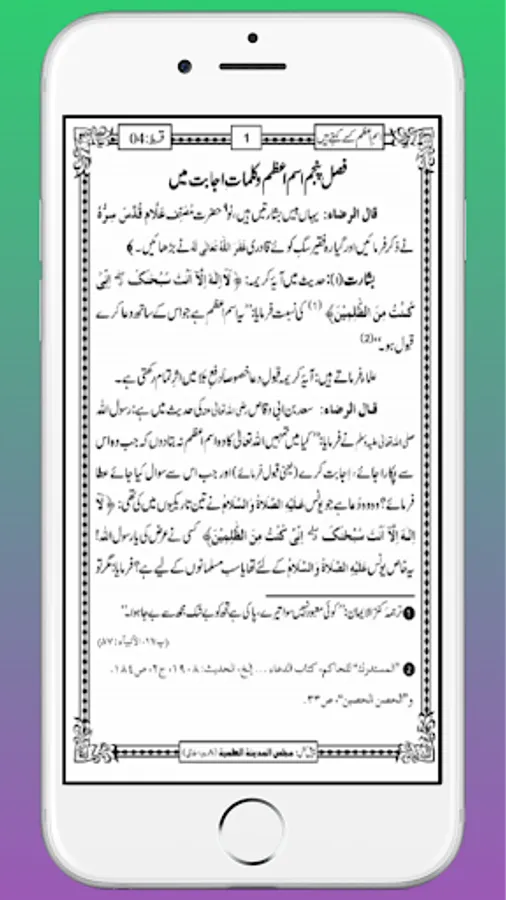 اسمِ اعظم کسے کہتے ہیں
1
قسط:04
فصل پنجم اسمِ اعظم و کلماتِ اجابت میں
قال الرضاء: یہاں بیس بشارتیں ہیں، نو۹ حضرت مُصَنِّف عَلَّام قُدِّسَ سِرُّہٗ
نے ذکر فرمائیں اور گیارہ فقیر سگِ کوئے قادری غَفَرَ اللہُ تَعَالٰی لَہٗ نے بڑھائیں۔﴾
بشارت(۱): حدیث میں آیۂ کریمہ: ﴿لَاۤ اِلٰهَ اِلَّاۤ اَنْتَ سُبْحٰنَكَ ۖۗ اِنِّیْ
كُنْتُ مِنَ الظّٰلِمِیْنَ﴾ (1) کی نسبت فرمایا: ''یہ اسمِ اعظم ہے جو اس کے ساتھ دعا کرے
قبول ہو۔'' (2)
علماء فرماتے ہیں: آیۂ کریمہ قبولِ دعا خصوصاً دفعِ بلا میں اثرِ تمام رکھتی ہے۔
قال الرضاء: سعد بن ابی وقاص رضی اللہ تعالٰی عنہ کی حدیث میں ہے: رسول اللہ
صلی اللہ تعالٰی علیہ وسلم نے فرمایا: ''کیا میں تمہیں اللہ تعالٰی کا وہ اسمِ اعظم نہ بتا دوں کہ جب وہ اس
سے پکارا جائے، اجابت کرے (یعنی قبول فرمائے) اور جب اس سے سوال کیا جائے عطا
فرمائے؟ وہ وہ دُعا ہے جو یونس عَلَیْہِ الصَّلٰوۃُ وَالسَّلَامُ نے تین تاریکیوں میں کی تھی: ﴿لَاۤ
اِلٰهَ اِلَّاۤ اَنْتَ سُبْحٰنَكَ ۖۗ اِنِّیْ كُنْتُ مِنَ الظّٰلِمِیْنَ﴾ کسی نے عرض کی یارسول اللہ!
یہ خاص یونس عَلَیْہِ الصَّلٰوۃُ وَالسَّلَامُ کے لئے تھا یا سب مسلمانوں کے لیے ہے؟ فرمایا: مگر تو
1 ترجمۂ کنز الایمان: ''کوئی معبود نہیں سوا تیرے، پاکی ہے تجھ کو بے شک مجھ سے بے جا ہوا۔''
(پ١٧، الأنبیآء: ٨٧)
2 ''المستدرك'' للحاکم، کتاب الدعاء ... إلخ، الحدیث: ١٩٠٨، ج٢، ص١٨٤.
و''الحصن الحصین''، ص٣٣.
پیش کش: مجلس المدینة العلمیة (دعوتِ اسلامی)